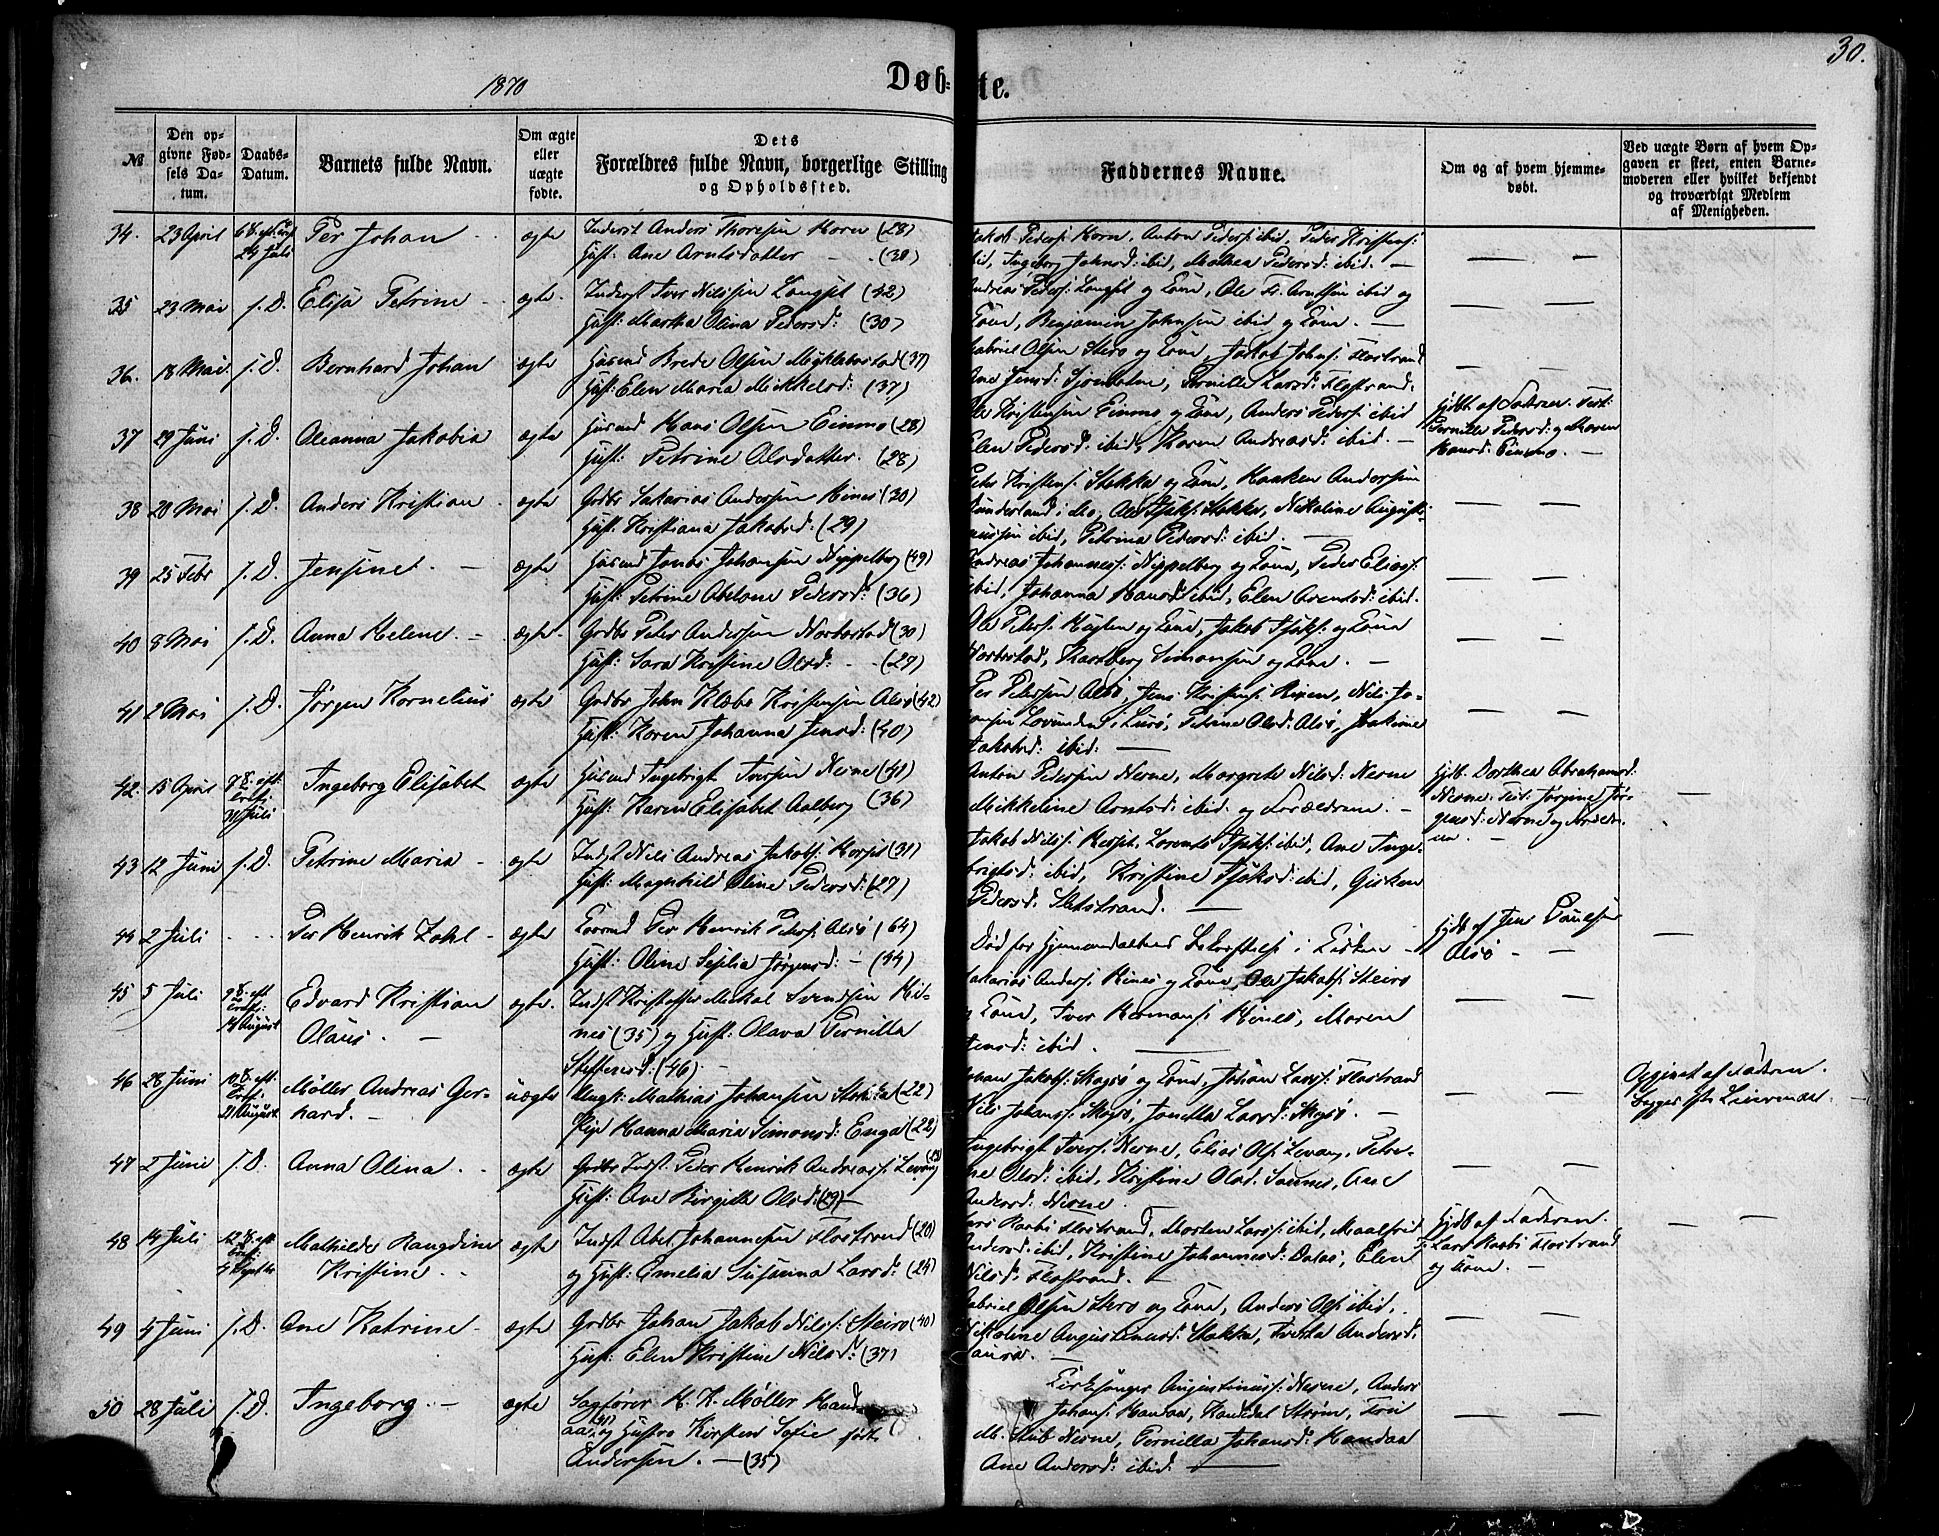 30.
1870
Døb-
te.
№
Den op-
givne Fød-
sels Da-
tum.
Daabs-
Datum.
Barnets fulde Navn.
Om ægte
eller
uægte
fødte.
Dets
Forældres fulde Navn, borgerlige Stilling
og Opholdssted.
Faddernes Navne.
Om og af hvem hjemme-
døbt.
Ved uægte Børn af hvem Op-
gaven er skeet, enten Barne-
moderen eller hvilket bekjendt
og troværdigt Medlem
af Menigheden.
34. 23 April 24 Juli Per Johan ægte Inderst Anders Thoresen Horn (28)
Hust: Ane Arntsdatter (38)
Jakob Peders: Horn, Anton Peders: ibid, Peder Kristens:
ibid, Ingeborg Johnsd: ibid, Mathea Pedersd: ibid.
35 23 Mai s. D. Elisa Petrine ægte Inderst Iver Nilssen Langset (42)
Hust: Martha Olina Pedersd: (30)
Andreas Peders: Langset og Kone, Ole Fr. Arntsen ibid og
Kone, Benjamin Johnsen ibid og Kone.
36. 18 Mai s. D. Bernhard Johan ægte Husmd Brede Olsen Myklebostad (37)
Hust: Elen Maria Mikkelsd: (37)
Gabriel Olsen Stero og Kone, Jakob Johns: Flostrand
Ane Jensd: Sjonholmen, Pernille Larsd: Flostrand.
37 29 Juni s. D. Oleanna Jakobia ægte Husmd Hans Olsen Einmo (28)
Hust: Petrine Olsdatter (28)
Ole Kristensen Einmo og Kone, Anders Peders: ibid
Elen Pedersd: ibid, Karen Andreasd: ibid.
Hjdbt. af Faderen. Test:
Pernille Pedersd: og Maren
Hansd: Einmo.
38 20 Mai s. D. Anders Kristian ægte Grdbr Sakarias Andersen Hines (30)
Hust: Kristiana Jakobsd: (29)
Peder Kristens: Stokka og Kone, Haaken Andersen
Dunderland i Mo, Ole Isaks: Stokka, Nikoline Augusti-
nussen ibid, Petrina Pedersd: ibid.
39 25 Febr s. D. Jensine ægte Husmd Jonas Johansen Neppelberg (49)
Hust: Petrine Abelone Pedersd: (36)
Andreas Johanness: Neppelberg og Kone, Peder Elias:
ibid, Johanna Hansd: ibid, Elen Arentsd: ibid.
40 8 Mai s. D. Anna Helene ægte Grdbr Peter Andersen Norbostad (30)
Hust: Sara Kristine Olsd: (27)
Ole Peders: Huglen og Kone, Jakob Isaks: og Kone
Norbostad, Hartberg Simonsen og Kone.
41 2 Mai s. D. Jørgen Kornelius ægte Grdbr John Klæbo Kristensen Alsø (42)
Hust: Karen Johanna Jensd: (40)
Per Petersen Alsø, Jens Kristens: Heien, Nils Jo-
hansen Lovunden i Lurø, Petrine Olsd: Alsø, Joakime
Jakobsd: ibid:
42. 15 April 31 Juli Ingeborg Elisabet ægte Husmd Ingebrigt Iversen Nesne (41)
Hust: Karen Elisabet Aalberg (36)
Anton Pedersen Nesne, Margrete Nilsd: Nesne
Mikkeline Arntsd: ibid og Forældrene.
Hjdb. Dorthea Abrahamsd:
Nesne. Test. Jørgine Jør-
gensd: Nesne og Moder-
en.
43 12 Juni s. D. Petrine Maria ægte Indst Nils Andreas Jakobs: Horset (31)
Hust: Magnhild Oline Pedersd: (27)
Jakob Nilss: Horset, Lorents Isaks: ibid, Ane Inge-
brigtsd: ibid, Kristine Isaksd: ibid, Gisken
Pedersd: Sletstrand.
44 2 Juli Per Henrik Zakl ægte Per Henrik Peders: Alsø (64)
Hust: Oline Sesilia Jørgensd: (44)
Død før Hjemmedaabens Bekræftelse i Kirken
Hjdbt. af Jens Poulsen
Alsø
45 5 Juli 14 August Edvard Kristian
Olaus ægte Indst Kristoffer Mikal Svendsen Hi-
nes (35) og Hust: Olava Pernilla
Steffensd: (46)
Sakarias Anders: Hines og Kone, Ole Jakobs: Steiro
og Kone, Iver Hermans: Hines, Maren
Jensd: ibid.
46 28 Juni 21 August Møller Andreas Ger-
hard. uægte Ungk: Mathias Johansen Stokka (22)
Pige Hanna Maria Simonsd: Enga (22)
Johan Jakobs: Skogsø og Kone, Johan Larss: Flostrand
Nils Johans: Skogsø, Jonetta Larsd: Skogsø.
Opgivet af Faderen.
47 2 Juni s. D. Anna Olina ægte Grdbr Indst. Peder Henrik Andreass: Levang
Hust: Ane Birgitte Olsd: (29)
Ingebrigt Ivers: Nesne, Elias Ols: Levang, Petri-
ne Olsd: ibid, Kristine Olsd. Saunes, Ane
Andersd: Nesne.
48 14 Juli Mathilde Rangdine
Kristine ægte Indst Abel Johannesen Flostrand (20)
og Hust: Amelia Susanna Larsd: (24)
Lars Rasbi Flostrand, Morten Larss: ibid, Maalfrid
Andersd: ibid, Kristine Johannesd: Dalos, Elen
Nilsd: Flostrand.
Hjdbt af Faderen.
T: Lars Rasbi Flostrand
og Kone.
49 4 Juni s. D. Ane Katrine ægte Grdbr Johan Jakob Nilss: Steiro (40)
Hust: Elen Kristine Nilsd: (37)
Gabriel Olsen Stero og Kone, Anders Ols: ibid,
Nikoline Augustinusd: Stokka, Andersd:
50 28 Juli s. D. Ingeborg ægte Sagfører H. K. Møller Hand-
aa og Hustro Kirsten Sofie født
Andersen. (35)
Kirkesanger Augustinuss: Nesne, Anders
Johans: Handaa, Handel Strøm, Frø
M. Stub Nesne, Pernilla Johansd: Handaa
Ane Andersd: ibid: